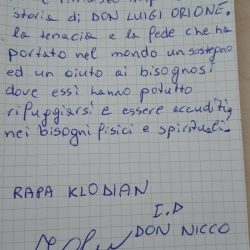 storia di DON LUIGI ORIONE.
la tenacia e la fede che ha
portato nel mondo un sostegno
ed un aiuto ai bisognosi
dove essi hanno potutto
rifuggiarsi e essere accuditi,
nei bisogni fisici e spirituali.
RAPA KLODIAN
I.D
DON NICCO